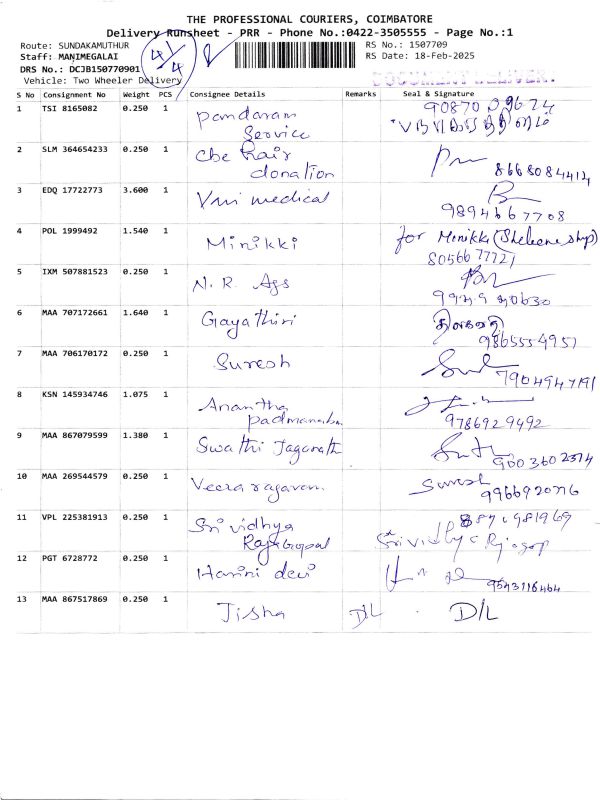 THE PROFESSIONAL COURIERS, COIMBATORE
Delivery Runsheet - PRR - Phone No.:0422-3505555 - Page No.:1
Route: SUNDAKAMUTHUR
RS No.: 1507709
Staff: MANIMEGALAI
4/4
RS Date: 18-Feb-2025
DRS No.: DCJB150770901
Vehicle: Two Wheeler Delivery
S No Consignment No Weight PCS Consignee Details Remarks Seal & Signature
1 TSI 8165082 0.250 1 Pandaram
Service
2 SLM 364654233 0.250 1 Cbe hair 8668084414
donation
3 EDQ 17722773 3.600 1 Vmi medical
9894667708
4 POL 1999492 1.540 1 Minikki for Minikki
8056677721
5 IXM 507881523 0.250 1 N. R. Ags
6 MAA 707172661 1.640 1 Gayathiri
9865554957
7 MAA 706170172 0.250 1 Suresh
7904947191
8 KSN 145934746 1.075 1 Anantha
padmanaban
9786929492
9 MAA 867079599 1.380 1 Swathi Jaganath
9003602374
10 MAA 269544579 0.250 1 Veera ragavan Suresh
11 VPL 225381913 0.250 1 Sri vidhya
Rajagopal
12 PGT 6728772 0.250 1 Harini devi
9543116464
13 MAA 867517869 0.250 1 Jisha D/L D/L